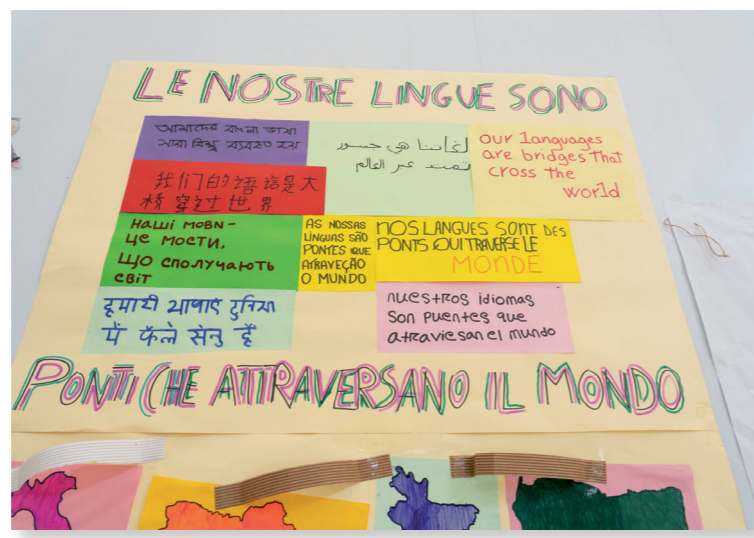 LE NOSTRE LINGUE SONO
আমাদের বাংলা ভাষা
সারা বিশ্বে ব্যবহৃত হয়
لغاتنا هي جسور
تمتد عبر العالم
our languages
are bridges that
cross the
world
我们的语信是大
精穿过世界
наші мови -
це мости,
що сполучають
світ
AS NOSSAS
LINGUAS SÃO
PONTES QUE
ATRAVEÇÃO
O MUNDO
NOS LANGUES SONT DES
PONTS QUI TRAVERSE LE
MONDE
हमारी भाषाएँ दुनिया
में फैले सेतु हैं
nuestros idiomas
son puentes que
atraviesan el mundo
PONTI CHE ATTRAVERSANO IL MONDO